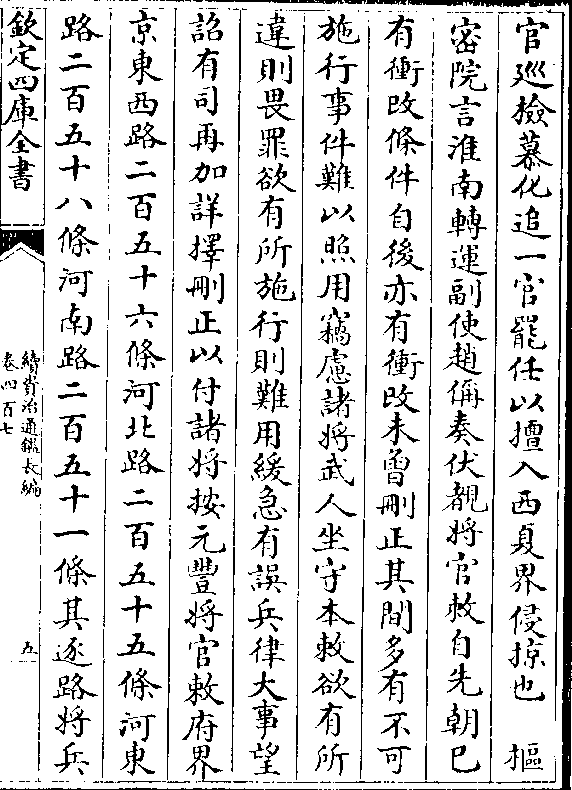 官巡檢慕化追一官罷任以擅入西夏界侵掠也　樞
密院言淮南轉運副使趙偁奏伏覩將官敕自先朝已
有衝改條件自後亦有衝改未曾刪正其間多有不可
施行事件難以照用竊慮諸將武人坐守本敕欲有所
違則畏罪欲有所施行則難用緩急有誤兵律大事望
詔有司再加詳擇刪正以付諸將按元豐將官敕府界
京東西路二百五十六條河北路二百五十五條河東
路二百五十八條河南路二百五十一條其逐路將兵
欽定四庫全書
續資治通鑑長編
卷四百七
五